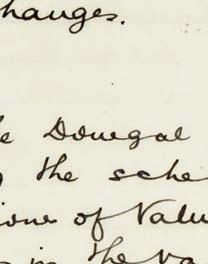 hanges.
e Donegal
the sche
ions of Valu
in the va